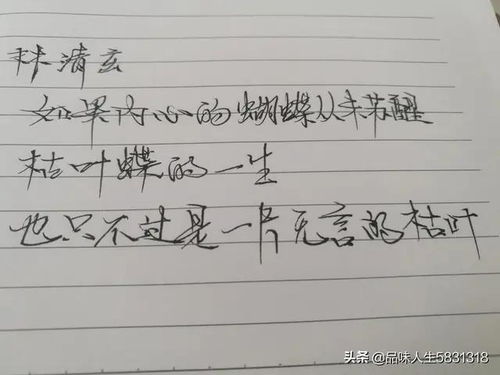 林清玄
如果内心的蝴蝶从未苏醒
枯叶蝶的一生
也只不过是一片无言的枯叶
头条 @品味人生5831318